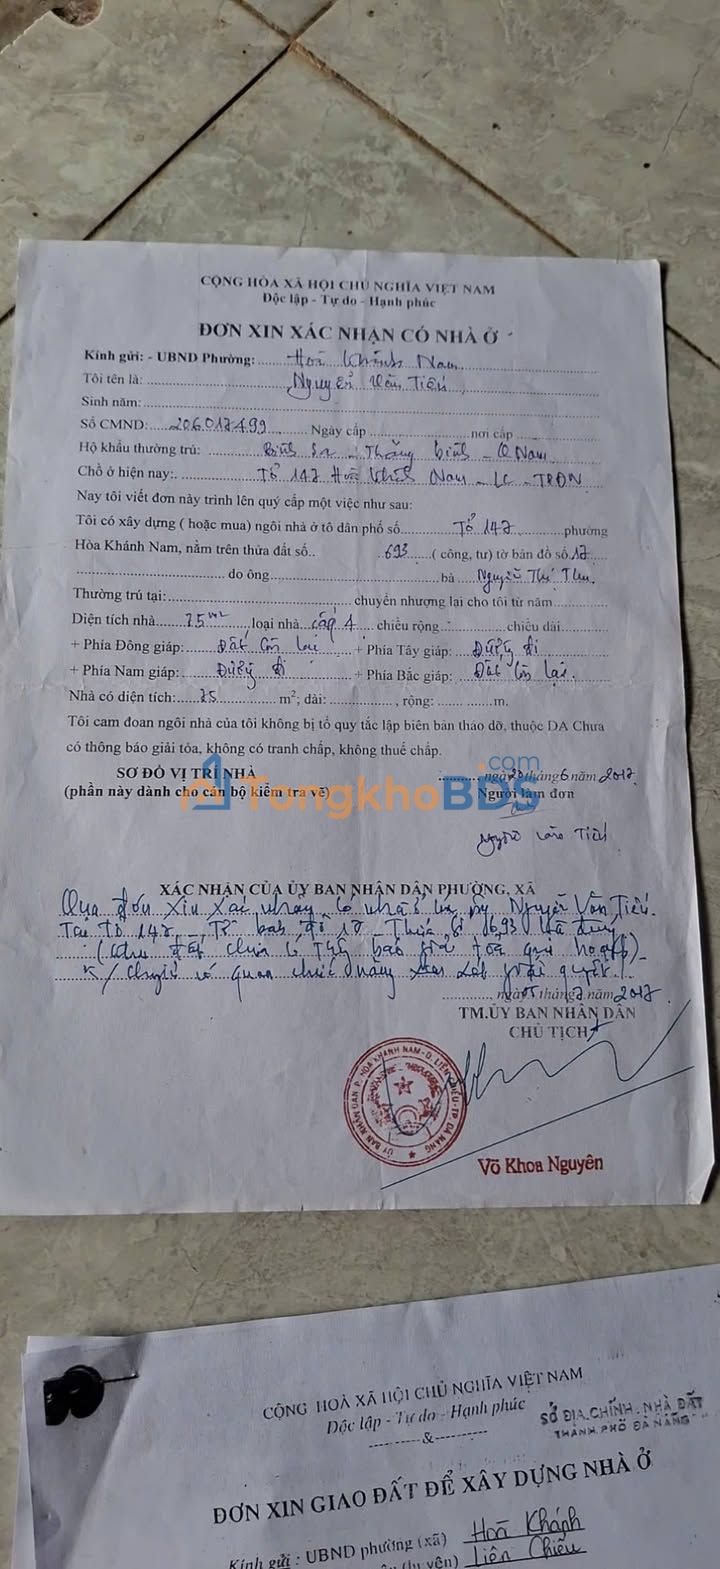 CỘNG HÒA XÃ HỘI CHỦ NGHĨA VIỆT NAM
Độc lập - Tự do - Hạnh phúc
ĐƠN XIN XÁC NHẬN CÓ NHÀ Ở
Kính gửi: - UBND Phường: Hoà Khánh Nam
Tôi tên là: Nguyễn Văn Tiến
Sinh năm:
Số CMND: 206017499 Ngày cấp nơi cấp
Hộ khẩu thường trú: Bình Sa - Thăng Bình - Q Nam
Chỗ ở hiện nay: Tổ 147 Hoà Khánh Nam - LC - TPĐN
Nay tôi viết đơn này trình lên quý cấp một việc như sau:
Tôi có xây dựng ( hoặc mua) ngôi nhà ở tổ dân phố số Tổ 147 phường
Hòa Khánh Nam, nằm trên thửa đất số.. 693 ( công, tư) tờ bản đồ số 17
do ông bà Nguyễn Thị Thu
Thường trú tại: chuyển nhượng lại cho tôi từ năm
Diện tích nhà 75 m2 loại nhà cấp 4 chiều rộng chiều dài
+ Phía Đông giáp: Đất còn lại + Phía Tây giáp: Đường đi
+ Phía Nam giáp: Đường đi + Phía Bắc giáp: Đất còn lại
Nhà có diện tích: 75 m2, dài: , rộng: m.
Tôi cam đoan ngôi nhà của tôi không bị tổ quy tắc lập biên bản tháo dỡ, thuộc DA Chưa
có thông báo giải tỏa, không có tranh chấp, không thuế chấp.
SƠ ĐỒ VỊ TRÍ NHÀ ngày 20 tháng 6 năm 2017
(phần này dành cho cán bộ kiểm tra vẽ) Người làm đơn
TongkhoBDS.com
Nguyễn Văn Tiến
XÁC NHẬN CỦA ỦY BAN NHÂN DÂN PHƯỜNG, XÃ
Qua đơn xin xác nhận có nhà ở của ông Nguyễn Văn Tiến
Tại tổ 147, Tờ bản đồ 17 - Thửa số 693 là đúng
(Khu đất chưa có thông báo giải toả quy hoạch)
K/ chuyển cơ quan chức năng xem xét giải quyết
ngày 05 tháng 7 năm 2017
TM.ỦY BAN NHÂN DÂN
CHỦ TỊCH
ỦY BAN NHÂN DÂN P. HÒA KHÁNH NAM - Q. LIÊN CHIỂU - TP ĐÀ NẴNG
Võ Khoa Nguyên
CỘNG HOÀ XÃ HỘI CHỦ NGHĨA VIỆT NAM
Độc lập - Tự do - Hạnh phúc
SỞ ĐỊA CHÍNH - NHÀ ĐẤT
THÀNH PHỐ ĐÀ NẴNG
---------&---------
ĐƠN XIN GIAO ĐẤT ĐỂ XÂY DỰNG NHÀ Ở
Kính gửi : UBND phường (xã) Hoà Khánh
(huyện) Liên Chiểu